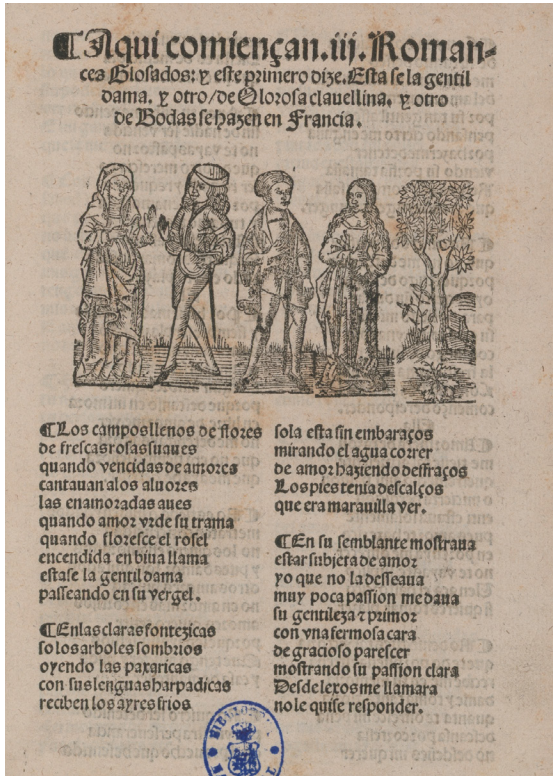 ¶Aqui comiençan.iij.Roman-
ces Glosados: y este primero dize. Esta se la gentil
dama. y otro/de Olorosa clauellina. y otro
de Bodas se hazen en Francia.
¶Los campos llenos de flores
de frescas rosas suaues
quando vencidas de amores
cantauan alos aluores
las enamoradas aues
quando amor vrde su trama
quando floresce el rosel
encendida en biua llama
estase la gentil dama
passeando en su vergel.
¶Enlas claras fontezicas
so los arboles sombrios
oyendo las paxaricas
con sus lenguas harpadicas
reciben los ayres frios
sola esta sin embaraços
mirando el agua correr
de amor haziendo desfraços
Los pies tenia descalços
que era marauilla ver.
¶En su semblante mostraua
estar subjeta de amor
yo que no la desseaua
muy poca passion me daua
su gentileza ⁊ primor
con vna fermosa cara
de gracioso parescer
mostrando su passion clara
Desde lexos me llamara
no le quise responder.